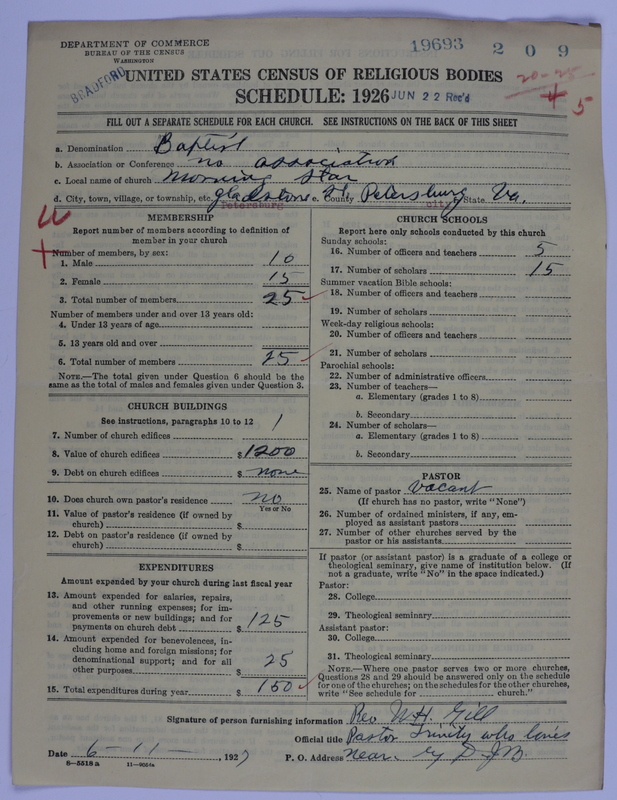 DEPARTMENT OF COMMERCE
BUREAU OF THE CENSUS
WASHINGTON
19693 2 0 9
BRADFORD
UNITED STATES CENSUS OF RELIGIOUS BODIES
20-25
SCHEDULE: 1926 JUN 22 Rec'd
5
FILL OUT A SEPARATE SCHEDULE FOR EACH CHURCH. SEE INSTRUCTIONS ON THE BACK OF THIS SHEET
a. Denomination Baptist
b. Association or Conference no association
c. Local name of church Morning Star
d. City, town, village, or township, etc. Gladstone St, e. County Petersburg f. State Va.
Petersburg city
MEMBERSHIP
Report number of members according to definition of
member in your church
Number of members, by sex:
1. Male 10
2. Female 15
3. Total number of members 25
Number of members under and over 13 years old:
4. Under 13 years of age
5. 13 years old and over
6. Total number of members 25
NOTE.—The total given under Question 6 should be the
same as the total of males and females given under Question 3.
CHURCH BUILDINGS
See instructions, paragraphs 10 to 12
7. Number of church edifices 1
8. Value of church edifices $ 1200
9. Debt on church edifices $ none
10. Does church own pastor's residence no
Yes or No
11. Value of pastor's residence (if owned by
church) $
12. Debt on pastor's residence (if owned by
church) $
EXPENDITURES
Amount expended by your church during last fiscal year
13. Amount expended for salaries, repairs,
and other running expenses; for im-
provements or new buildings; and for
payments on church debt $ 125
14. Amount expended for benevolences, in-
cluding home and foreign missions; for
denominational support; and for all
other purposes $ 25
15. Total expenditures during year $ 150
CHURCH SCHOOLS
Report here only schools conducted by this church
Sunday schools:
16. Number of officers and teachers 5
17. Number of scholars 15
Summer vacation Bible schools:
18. Number of officers and teachers
19. Number of scholars
Week-day religious schools:
20. Number of officers and teachers
21. Number of scholars
Parochial schools:
22. Number of administrative officers
23. Number of teachers—
a. Elementary (grades 1 to 8)
b. Secondary
24. Number of scholars—
a. Elementary (grades 1 to 8)
b. Secondary
PASTOR
25. Name of pastor Vacant
(If church has no pastor, write "None")
26. Number of ordained ministers, if any, em-
ployed as assistant pastors
27. Number of other churches served by the
pastor or his assistants
If pastor (or assistant pastor) is a graduate of a college or
theological seminary, give name of institution below. (If
not a graduate, write "No" in the space indicated.)
Pastor:
28. College
29. Theological seminary
Assistant pastor:
30. College
31. Theological seminary
NOTE.—Where one pastor serves two or more churches,
Questions 28 and 29 should be answered only on the schedule
for one of the churches; on the schedules for the other churches,
write "See schedule for church."
Signature of person furnishing information Rev W.H. Gill
Official title Pastor Trinity who lives
Date 6-11-, 1927 P. O. Address near
8-5518a 11-9554a